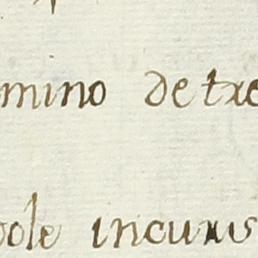 mino detre
pole incuris